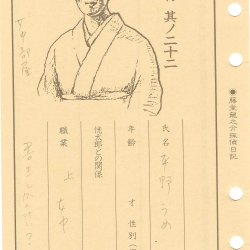 ●藤堂龍之介探偵日記
其ノ二十二
氏名 野 うめ
年齢 才 性別(
太郎との関係
職業 上 女中
女中部屋